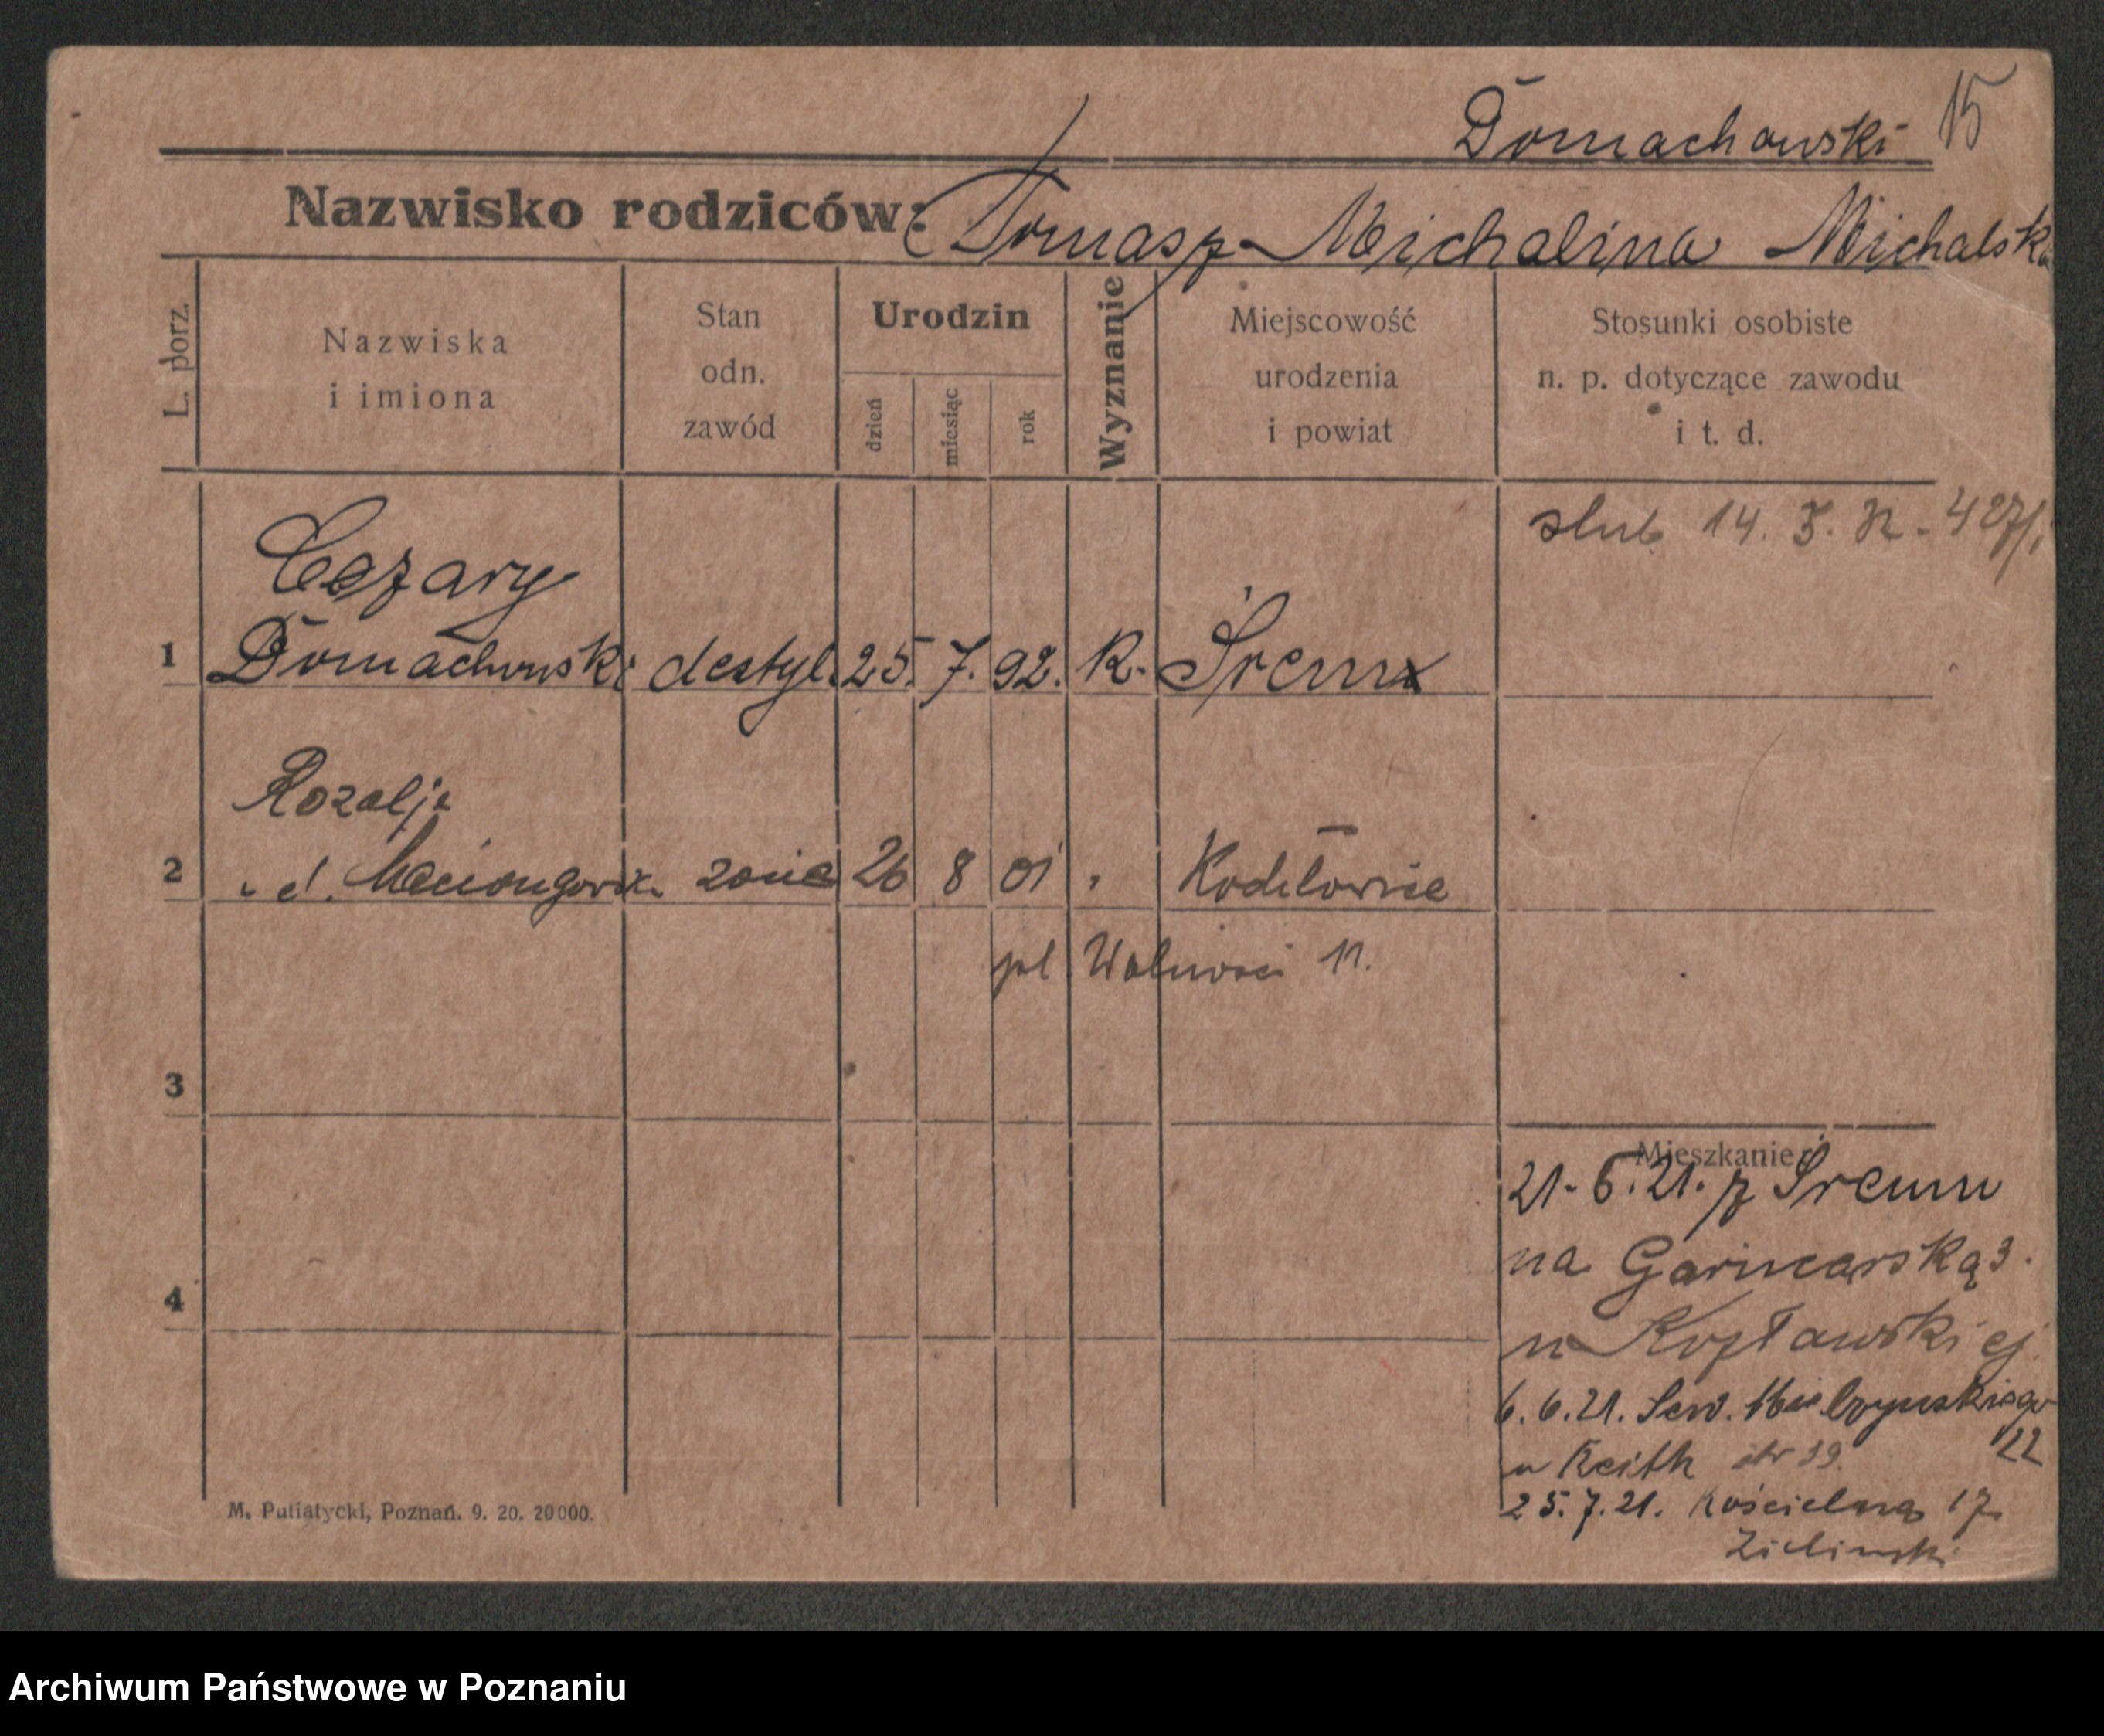 Domachowski 15
Nazwisko rodziców: Tomasz Michalina Michalska
L. porz.
Nazwiska
i imiona
Stan
odn.
zawód
Urodzin
dzień
miesiąc
rok
Wyznanie
Miejscowość
urodzenia
i powiat
Stosunki osobiste
n. p. dotyczące zawodu
i t. d.
Cezary
1 Domachowski destyl. 25. 7. 92. K. Śrem
Rozalja
2 d. zonie 26 8 01 "
pl. Wolności 11.
3
4
Mieszkanie:
21. 6. 21. z Śremu
na Garncarską 3.
u Kozłowskiej
6. 6. 21. Sew. Mielżyńskiego
22
u Keith
25. 7. 21. Kościelną 17.
Zielinski
M. Putiatycki, Poznań. 9. 20. 20000.
Archiwum Państwowe w Poznaniu